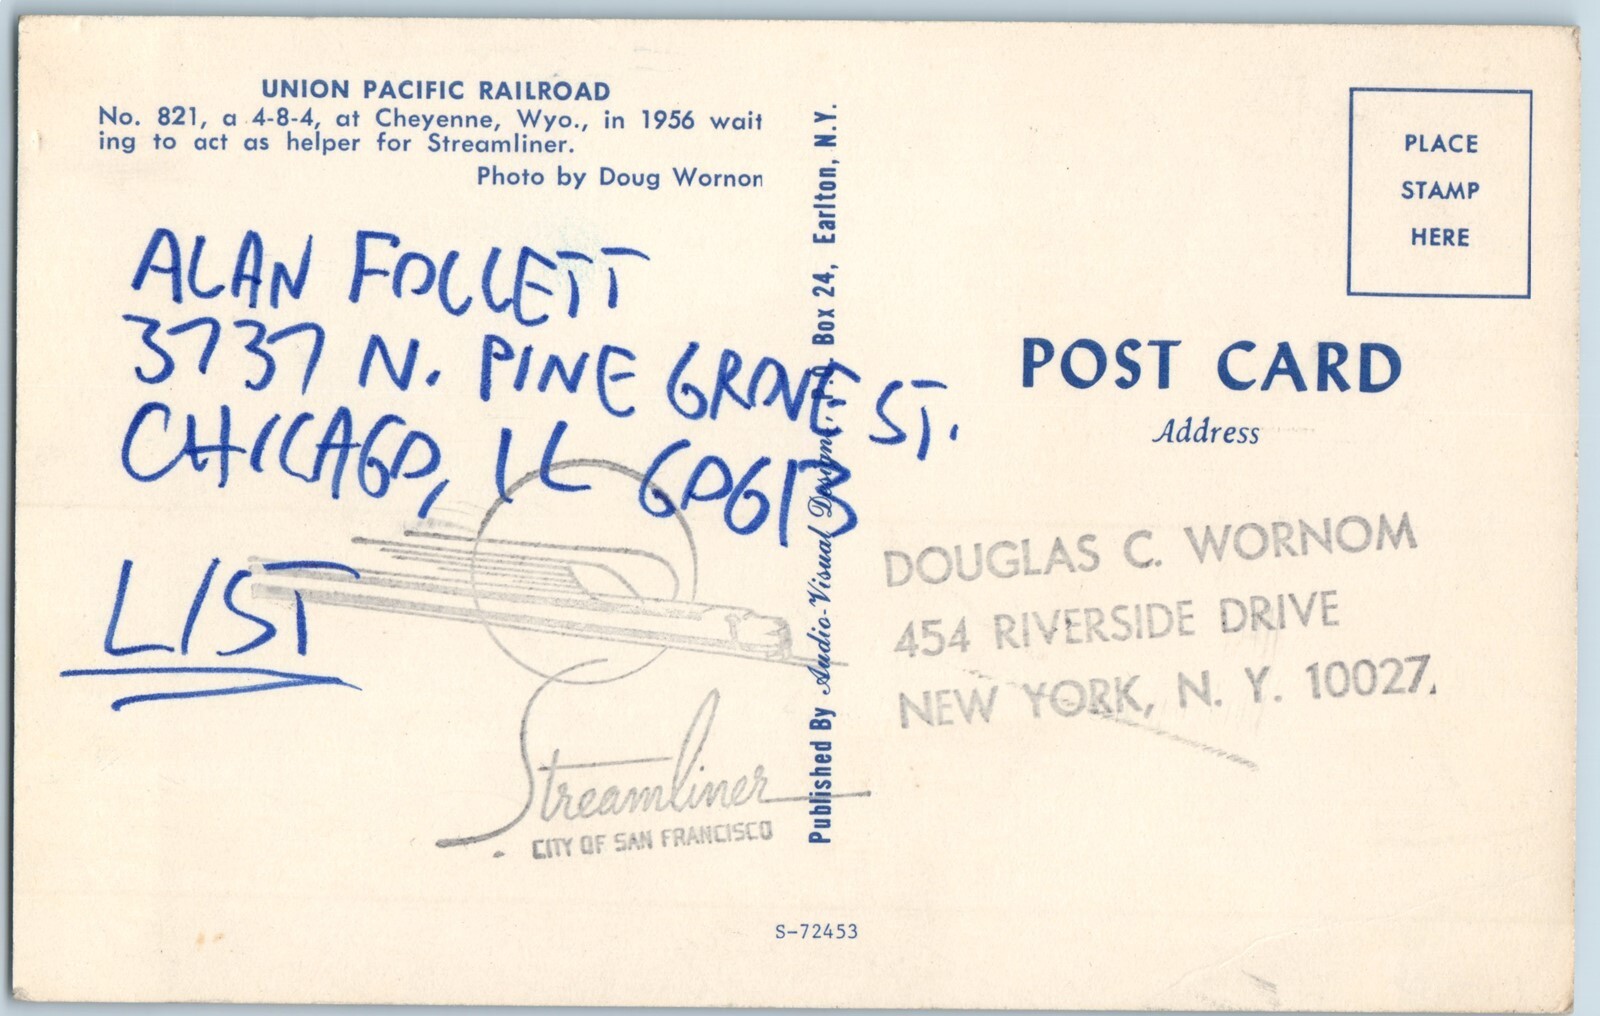 UNION PACIFIC RAILROAD
No. 821, a 4-8-4, at Cheyenne, Wyo., in 1956 wait
ing to act as helper for Streamliner.
Photo by Doug Wornon
ALAN FOLLETT
3737 N. PINE GROVE ST.
CHICAGO, IL 60613
LIST
Streamliner
CITY OF SAN FRANCISCO
Published By Audio-Visual Designs, P.O. Box 24, Earlton, N.Y.
S-72453
PLACE
STAMP
HERE
POST CARD
Address
DOUGLAS C. WORNOM
454 RIVERSIDE DRIVE
NEW YORK, N. Y. 10027.